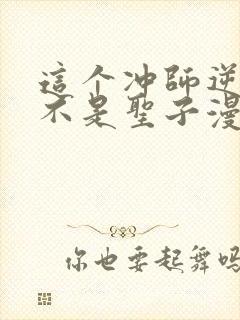 這个冲師逆
不是聖子漫
你也要起舞吗